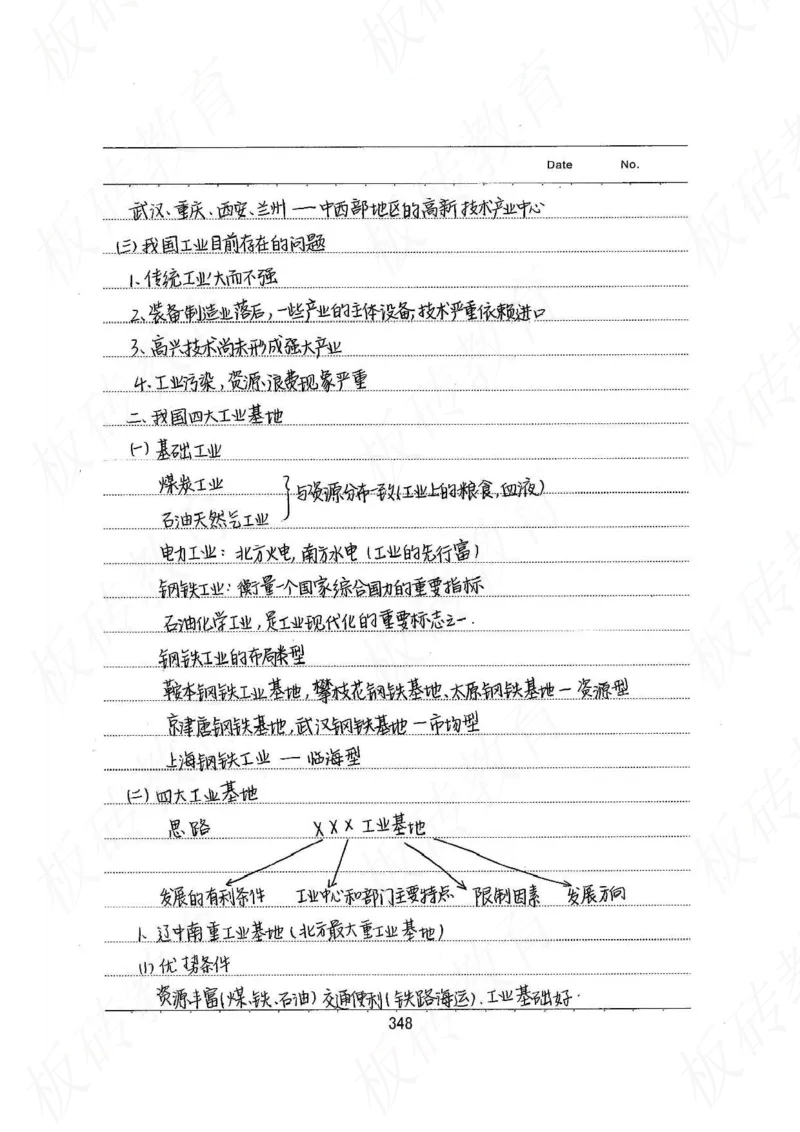 Date No.
武汉、重庆、西安、兰州 — 中西部地区的高新技术产业中心
(三)我国工业目前存在的问题
1、传统工业大而不强
2、装备制造业落后，一些产业的主体设备,技术严重依赖进口
3、高兴技术尚未形成强大产业
4、工业污染，资源浪费现象严重
二、我国四大工业基地
(一)基础工业
煤炭工业
} 与资源分布一致(工业上的粮食,血液)
石油天然气工业
电力工业：北方火电,南方水电(工业的先行富)
钢铁工业：衡量一个国家综合国力的重要指标
石油化学工业,是工业现代化的重要标志之一.
钢铁工业的布局类型
鞍本钢铁工业基地,攀枝花钢铁基地、太原钢铁基地 — 资源型
京津唐钢铁基地,武汉钢铁基地 — 市场型
上海钢铁工业 — 临海型
(二)四大工业基地
思路 XXX工业基地
发展的有利条件 工业中心和部门主要特点 限制因素 发展方向
1、辽中南重工业基地(北方最大重工业基地)
(1)优势条件
资源丰富(煤、铁、石油)交通便利(铁路海运)、工业基础好.
348
板砖教育